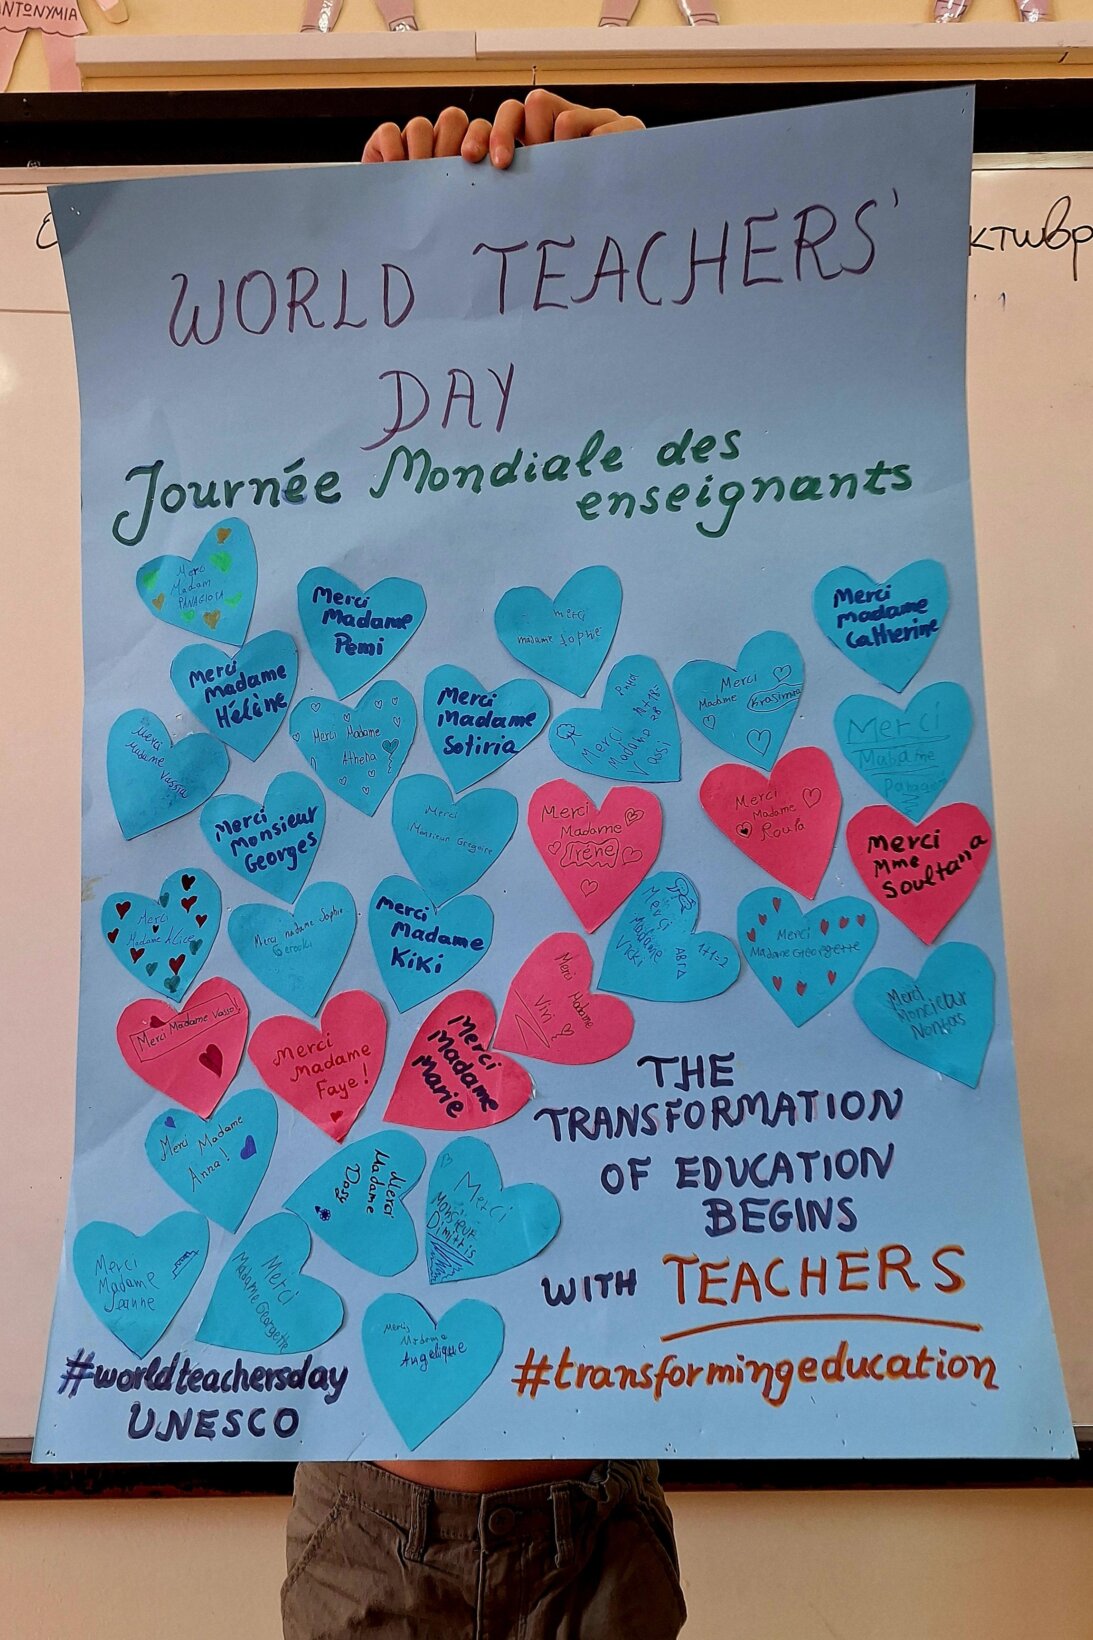 ΑΝΤΩΝΥΜΙΑ
κτωβρ
WORLD TEACHERS'
DAY
Journée Mondiale des
enseignants
Merci
Madam
PANAGIOTA
Merci
Madame
Pemi
merci
madame Sophie
Merci
madame
Catherine
Merci
Madame
Hélène
Merci
Madame
Vassia
Merci Madame
Athena
Merci
Madame
Sotiria
Merci
Madame
Vassi
Merci
Madame Krasimira
Merci
Madame
Merci
Monsieur
Georges
Merci
Monsieur Gregoire
Merci
Madame
Irène
Merci
Madame
Roula
Merci
Mme
Soultana
Merci
Madame Alice
Merci madame Sophie
Merci
Madame
Kiki
Merci
Madame
Vicki
ΑΒΓΔ
1+1=2
Merci
Madame Georgette
Merci
Moncieur
Nontas
Merci Madame Vasso!
Merci
Madame
Faye!
Merci
Madame
Marie
Merci Madame
Vivi
Merci Madame
Anna!
Merci
Madame
Dosy
Merci
Monsieur
Dimitris
Merci
Madame
Jeanne
Merci
Madame Georgette
Merci
Madame
Angelique
THE
TRANSFORMATION
OF EDUCATION
BEGINS
WITH TEACHERS
#worldteachersday
UNESCO
#transformingeducation